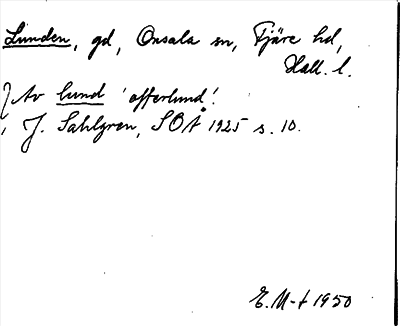 Lunden, gd, Onsala sn, Fjäre hd,
Hall. l.
Av lund 'offerlund'.
J. Sahlgren, SOÅ 1925 s. 10.
E. M-t 1950